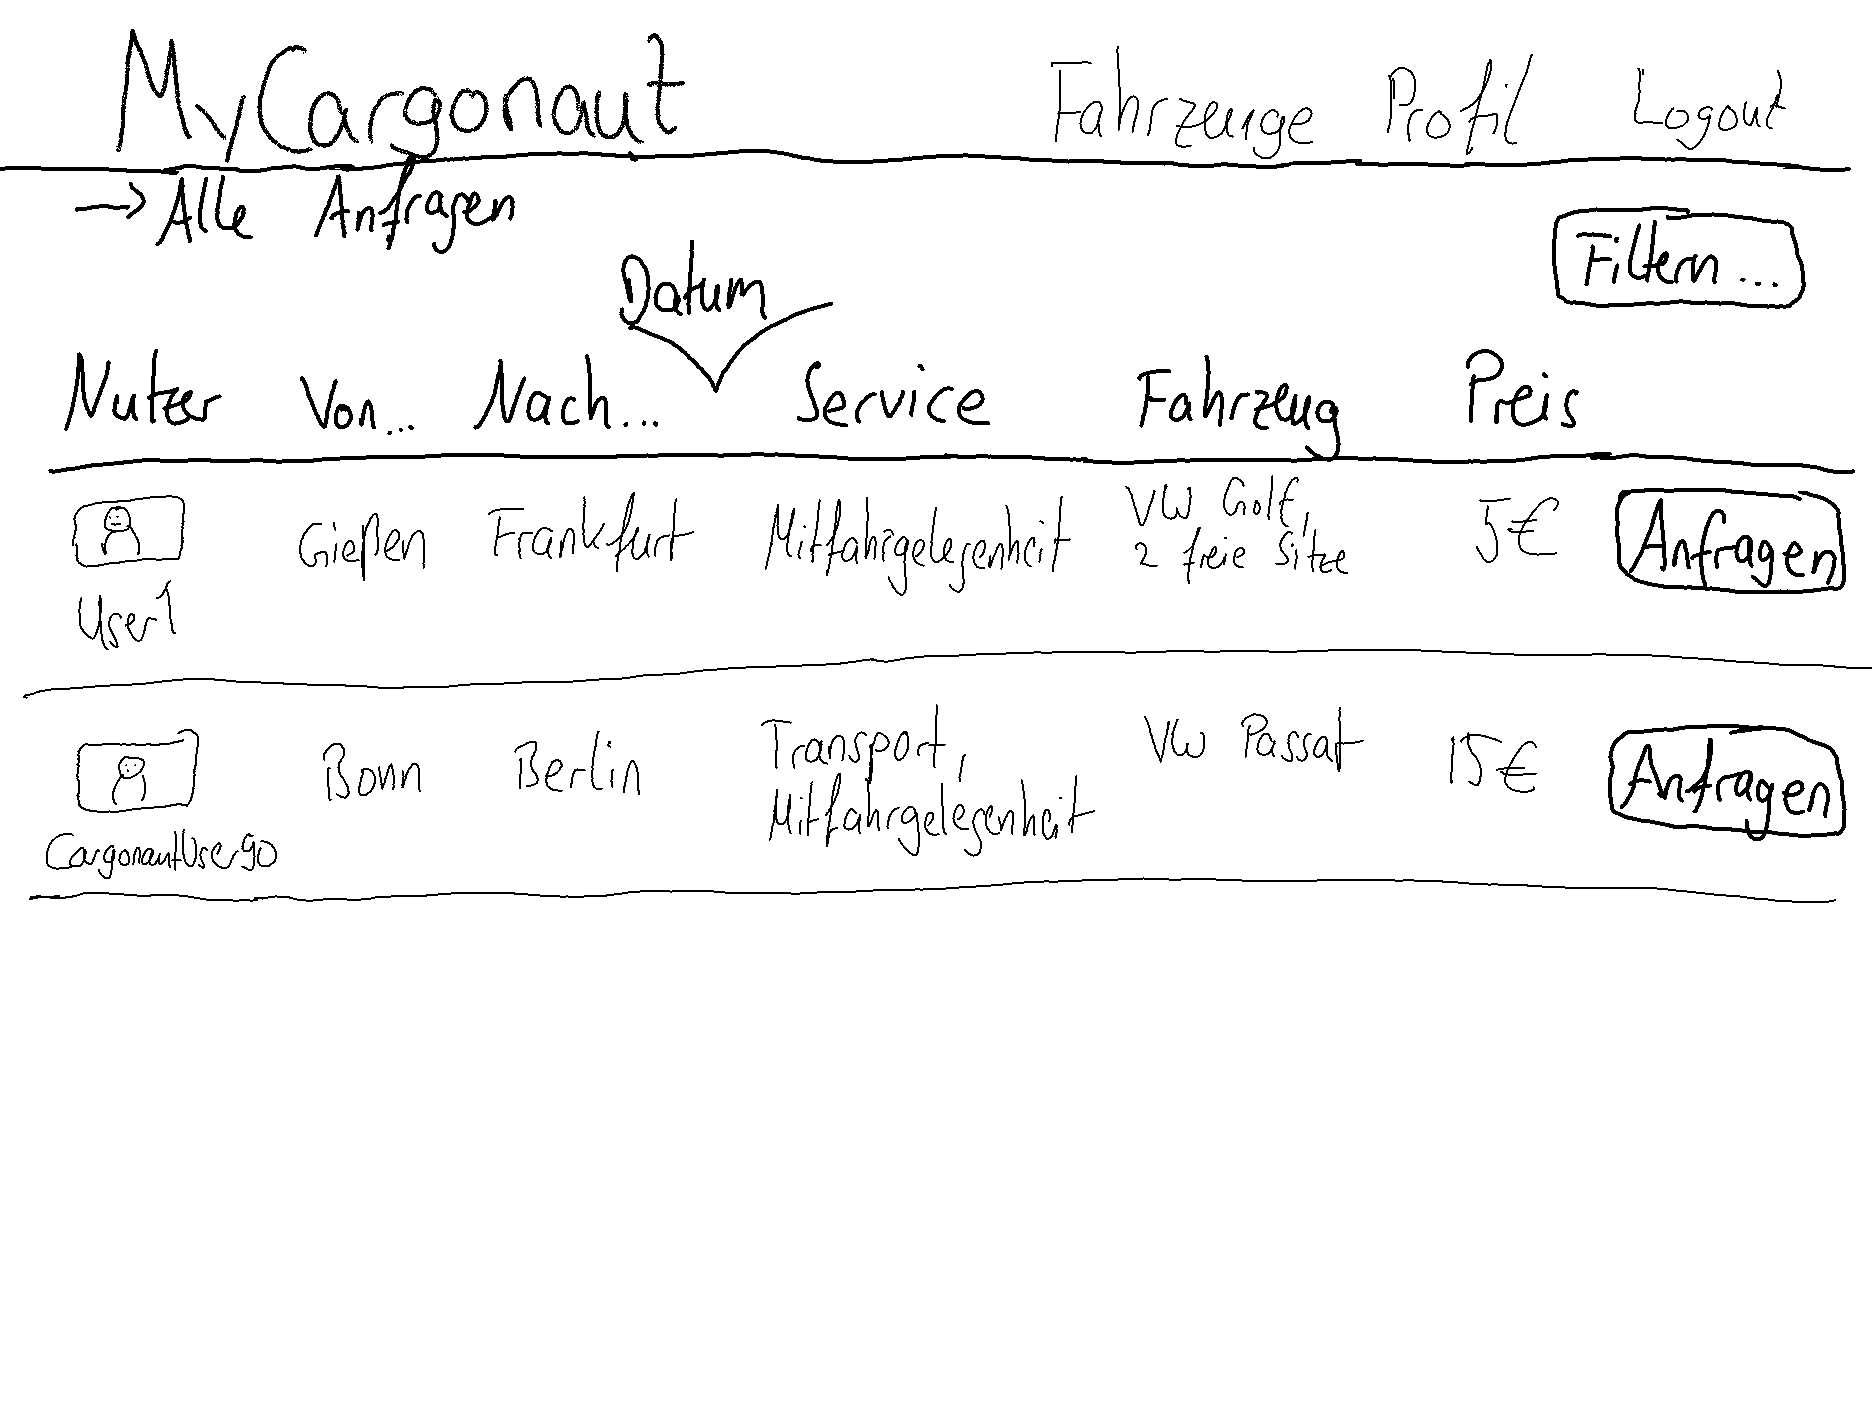 MyCargonaut Fahrzeuge Profil Logout
→ Alle Anfragen
Filtern...
Datum
Nutzer Von... Nach... Service Fahrzeug Preis
Gießen Frankfurt Mitfahrgelegenheit VW Golf, 2 freie Sitze 5€ Anfragen
User1
Bonn Berlin Transport, Mitfahrgelegenheit VW Passat 15€ Anfragen
CargonautUser90